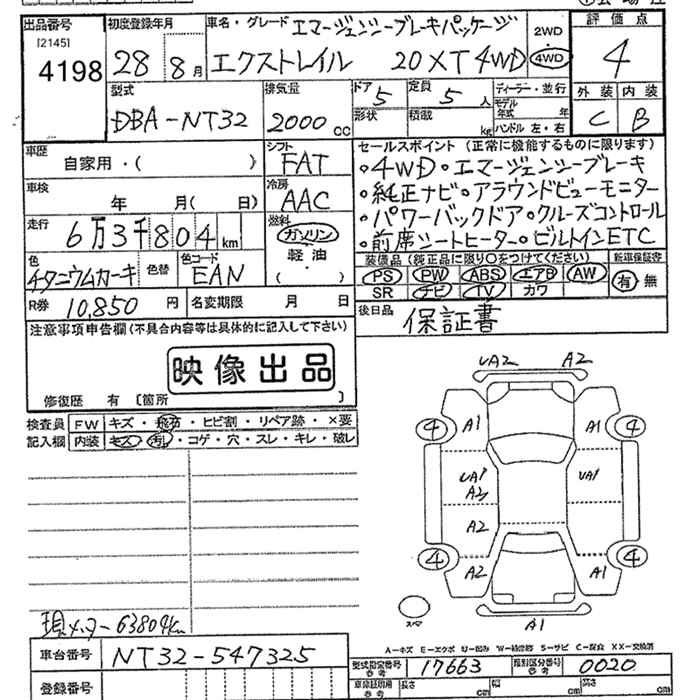 出品番号 初度登録年月 車名・グレード エマージェンシーブレーキパッケージ 2WD 評価点
[2145]
4198 28 8月 エクストレイル 20XT 4WD 4WD 4
型式 排気量 ドア 5 定員 5人 ディーラー・並行 外装 内装
DBA-NT32 2000cc 形状 積載 kg モデル年式 年 C B
ハンドル 左・右
車歴 自家用・( ) シフト FAT セールスポイント (正常に機能するものに限ります)
・4WD・エマージェンシーブレーキ
車検 年 月( 日) 冷房 AAC ・純正ナビ・アラウンドビューモニター
走行 6万3千804km 燃料 ガソリン ・パワーバックドア・クルーズコントロール
軽油 ・前席シートヒーター・ビルトインETC
色 チタニウムカーキ 色替 色コード EAN ( ) 装備品 (純正品に限り○をつけてください) 新車保証書
PS PW ABS エアB AW 有 無
R券 10,850円 名変期限 月 日 SR ナビ TV カワ
注意事項申告欄(不具合内容等は具体的に記入して下さい) 後日品 保証書
映像出品
修復歴 有 [箇所 ]
UA2 A2
検査員 FW キズ・飛石・ヒビ割・リペア跡・×要
記入欄 内装 キズ・汚れ・コゲ・穴・スレ・キレ・破レ
4 A1 A1 4
UA1 A2 UA1
A2
4 A2 A1 4
スペア A1
現メーター63804km
A-キズ E-エクボ U-凹み W-補修跡 S-サビ C-腐食 XX-交換済
車台番号 NT32-547325 型式指定番号 参考 17663 類別区分番号 参考 0020
登録番号 車庫証明用 参考 長さ cm 幅 cm 高さ cm